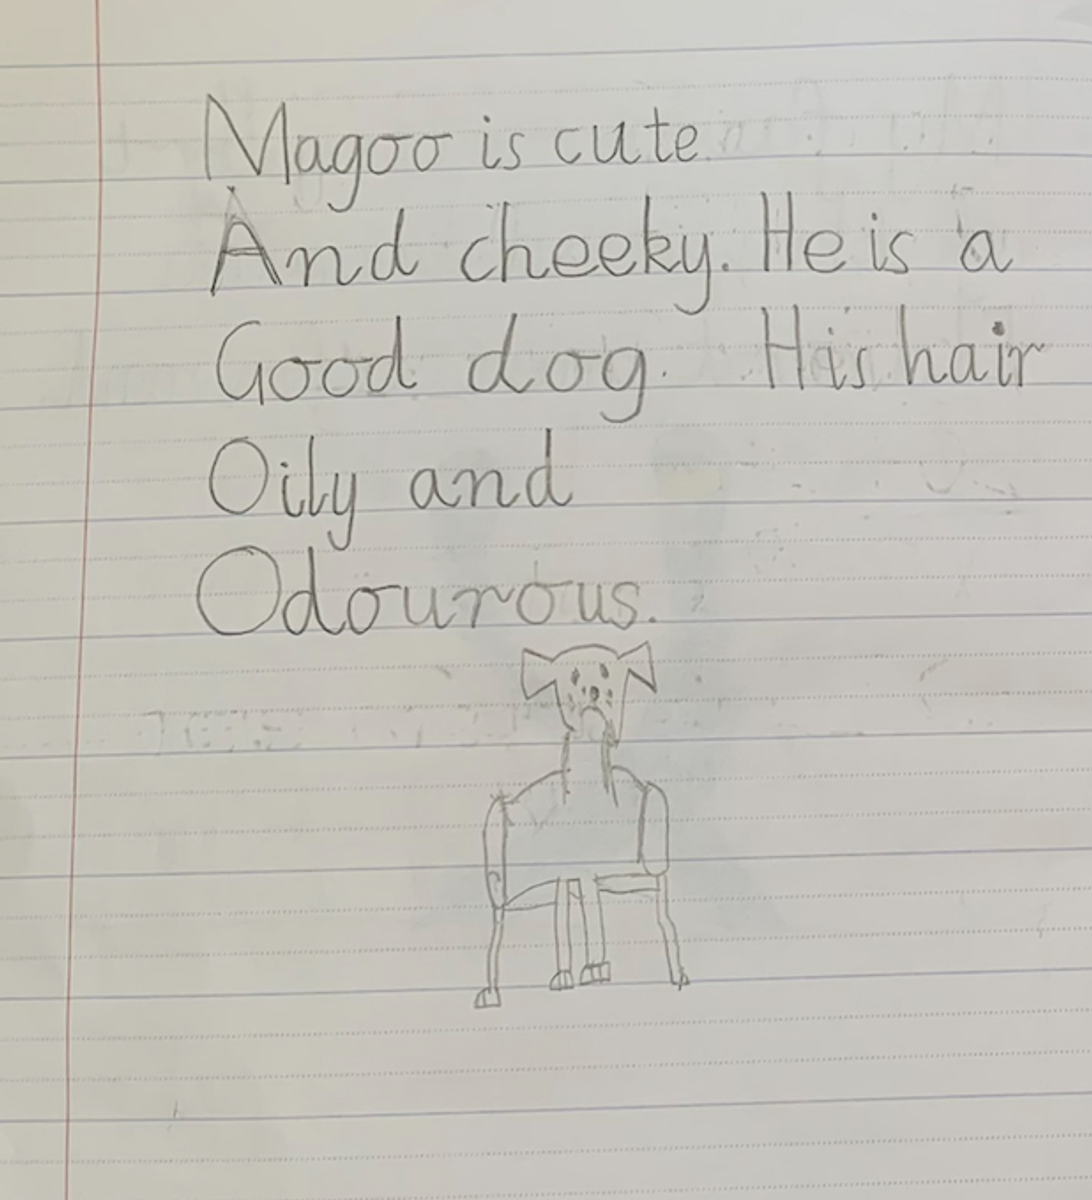 Magoo is cute
And cheeky. He is a
Good dog. His hair
Oily and
Odourous.